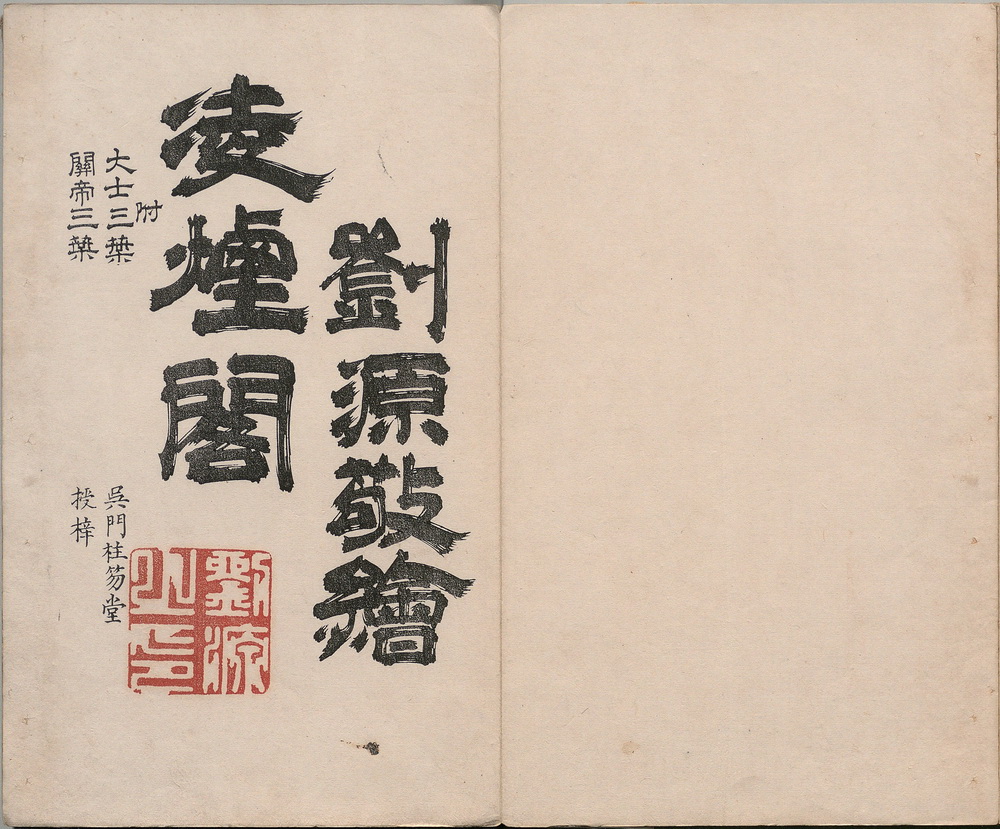 劉源敬繪
凌煙閣
附
大士三
關帝三
吳門柱笏堂
授梓
劉源
之印